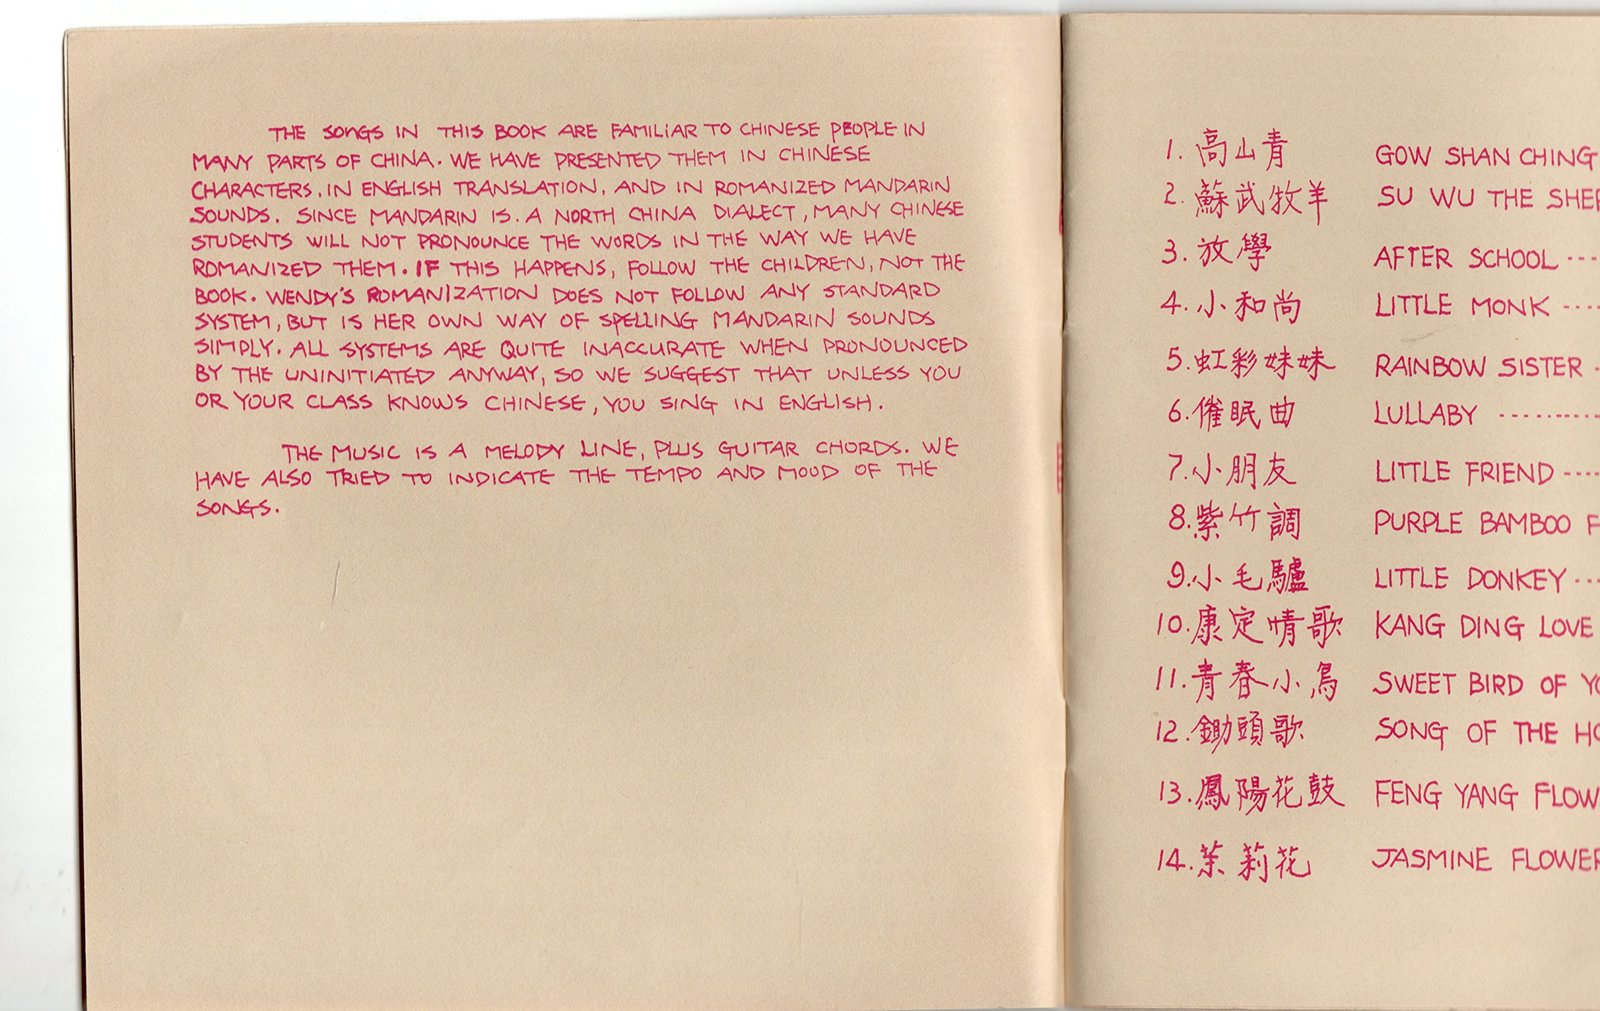 THE SONGS IN THIS BOOK ARE FAMILIAR TO CHINESE PEOPLE IN
MANY PARTS OF CHINA. WE HAVE PRESENTED THEM IN CHINESE
CHARACTERS, IN ENGLISH TRANSLATION, AND IN ROMANIZED MANDARIN
SOUNDS. SINCE MANDARIN IS A NORTH CHINA DIALECT, MANY CHINESE
STUDENTS WILL NOT PRONOUNCE THE WORDS IN THE WAY WE HAVE
ROMANIZED THEM. IF THIS HAPPENS, FOLLOW THE CHILDREN, NOT THE
BOOK. WENDY'S ROMANIZATION DOES NOT FOLLOW ANY STANDARD
SYSTEM, BUT IS HER OWN WAY OF SPELLING MANDARIN SOUNDS
SIMPLY. ALL SYSTEMS ARE QUITE INACCURATE WHEN PRONOUNCED
BY THE UNINITIATED ANYWAY, SO WE SUGGEST THAT UNLESS YOU
OR YOUR CLASS KNOWS CHINESE, YOU SING IN ENGLISH.
THE MUSIC IS A MELODY LINE, PLUS GUITAR CHORDS. WE
HAVE ALSO TRIED TO INDICATE THE TEMPO AND MOOD OF THE
SONGS.
1. 高山青 GOW SHAN CHING
2. 蘇武牧羊 SU WU THE SHEP
3. 放學 AFTER SCHOOL ---
4. 小和尚 LITTLE MONK ----
5. 虹彩妹妹 RAINBOW SISTER -
6. 催眠曲 LULLABY ----------
7. 小朋友 LITTLE FRIEND ----
8. 紫竹調 PURPLE BAMBOO F
9. 小毛驢 LITTLE DONKEY ---
10. 康定情歌 KANG DING LOVE
11. 青春小鳥 SWEET BIRD OF YO
12. 鋤頭歌 SONG OF THE HO
13. 鳳陽花鼓 FENG YANG FLOW
14. 茉莉花 JASMINE FLOWER